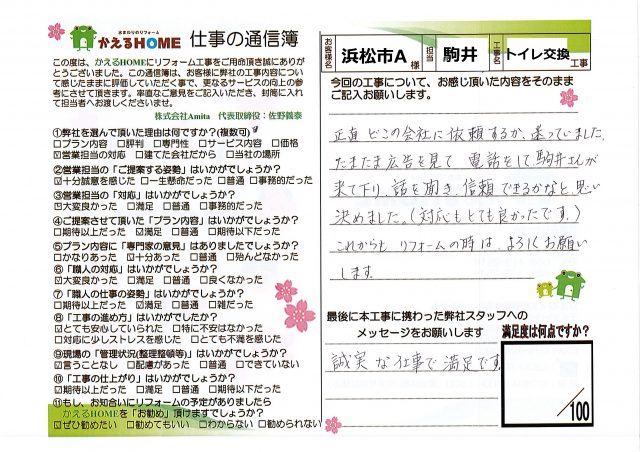 水まわりのリフォーム
かえるHOME 仕事の通信簿
この度は、かえるHOMEにリフォーム工事をご用命頂き誠にありが
とうございました。この通信簿は、お客様に弊社の工事内容につい
て感じたままに評価していただく事で、更なるサービスの向上の参
考にさせて頂きます。率直なご意見をご記入いただき、封筒に入れ
て担当者へお渡しくださいませ。
株式会社Amita 代表取締役:佐野義泰
①弊社を選んで頂いた理由は何ですか?(複数可)
□プラン内容 □評判 □専門性 □サービス内容 □価格
☑営業担当の対応 □建てた会社だから □当社の場所
②営業担当の「ご提案する姿勢」はいかがでしょうか?
☑十分誠意を感じた □一生懸命だった □普通 □事務的だった
③営業担当の「対応」はいかがでしょうか?
☑大変良かった □満足 □普通 □事務的だった
④ご提案させて頂いた「プラン内容」はいかがでしょうか?
□期待以上だった ☑満足 □普通 □期待以下だった
⑤プラン内容に「専門家の意見」はありましたでしょうか?
□かなりあった ☑十分あった □普通 □殆んどなかった
⑥「職人の対応」はいかがでしょうか?
☑大変良かった □満足 □普通 □良くなかった
⑦「職人の仕事の姿勢」はいかがでしょうか?
□期待以上だった ☑満足 □普通 □雑だった
⑧「工事の進め方」はいかがでしたか?
☑とても安心していられた □特に不安はなかった
□対応に少しストレスを感じた □とても不満を感じた
⑨現場の「管理状況(整理整頓等)」はいかがでしょうか?
☑言うことなし □配慮があった □普通 □できていない
⑩「工事の仕上がり」はいかがでしょうか?
□期待以上だった ☑満足 □普通 □期待以下だった
⑪もし、お知合いにリフォームの予定がありましたら
かえるHOMEを「お勧め」頂けますでしょうか?
☑ぜひ勧めたい □勧めてもいい □わからない □勧められない
お客様名 浜松市A 様 担当 駒井 工事名 トイレ交換 工事
今回の工事について、お感じ頂いた内容をそのまま
ご記入お願いします。
正直 どこの会社に依頼するか、迷っていました。
たまたま広告を見て 電話をして、駒井さんが
来て下り、話を聞き、信頼できるかなと思い
決めました。(対応もとても良かったです。)
これからも リフォームの時は、よろしくお願い
します。
最後に本工事に携わった弊社スタッフへの
メッセージをお願いします
満足度は何点ですか?
誠実な仕事で満足です。
/100